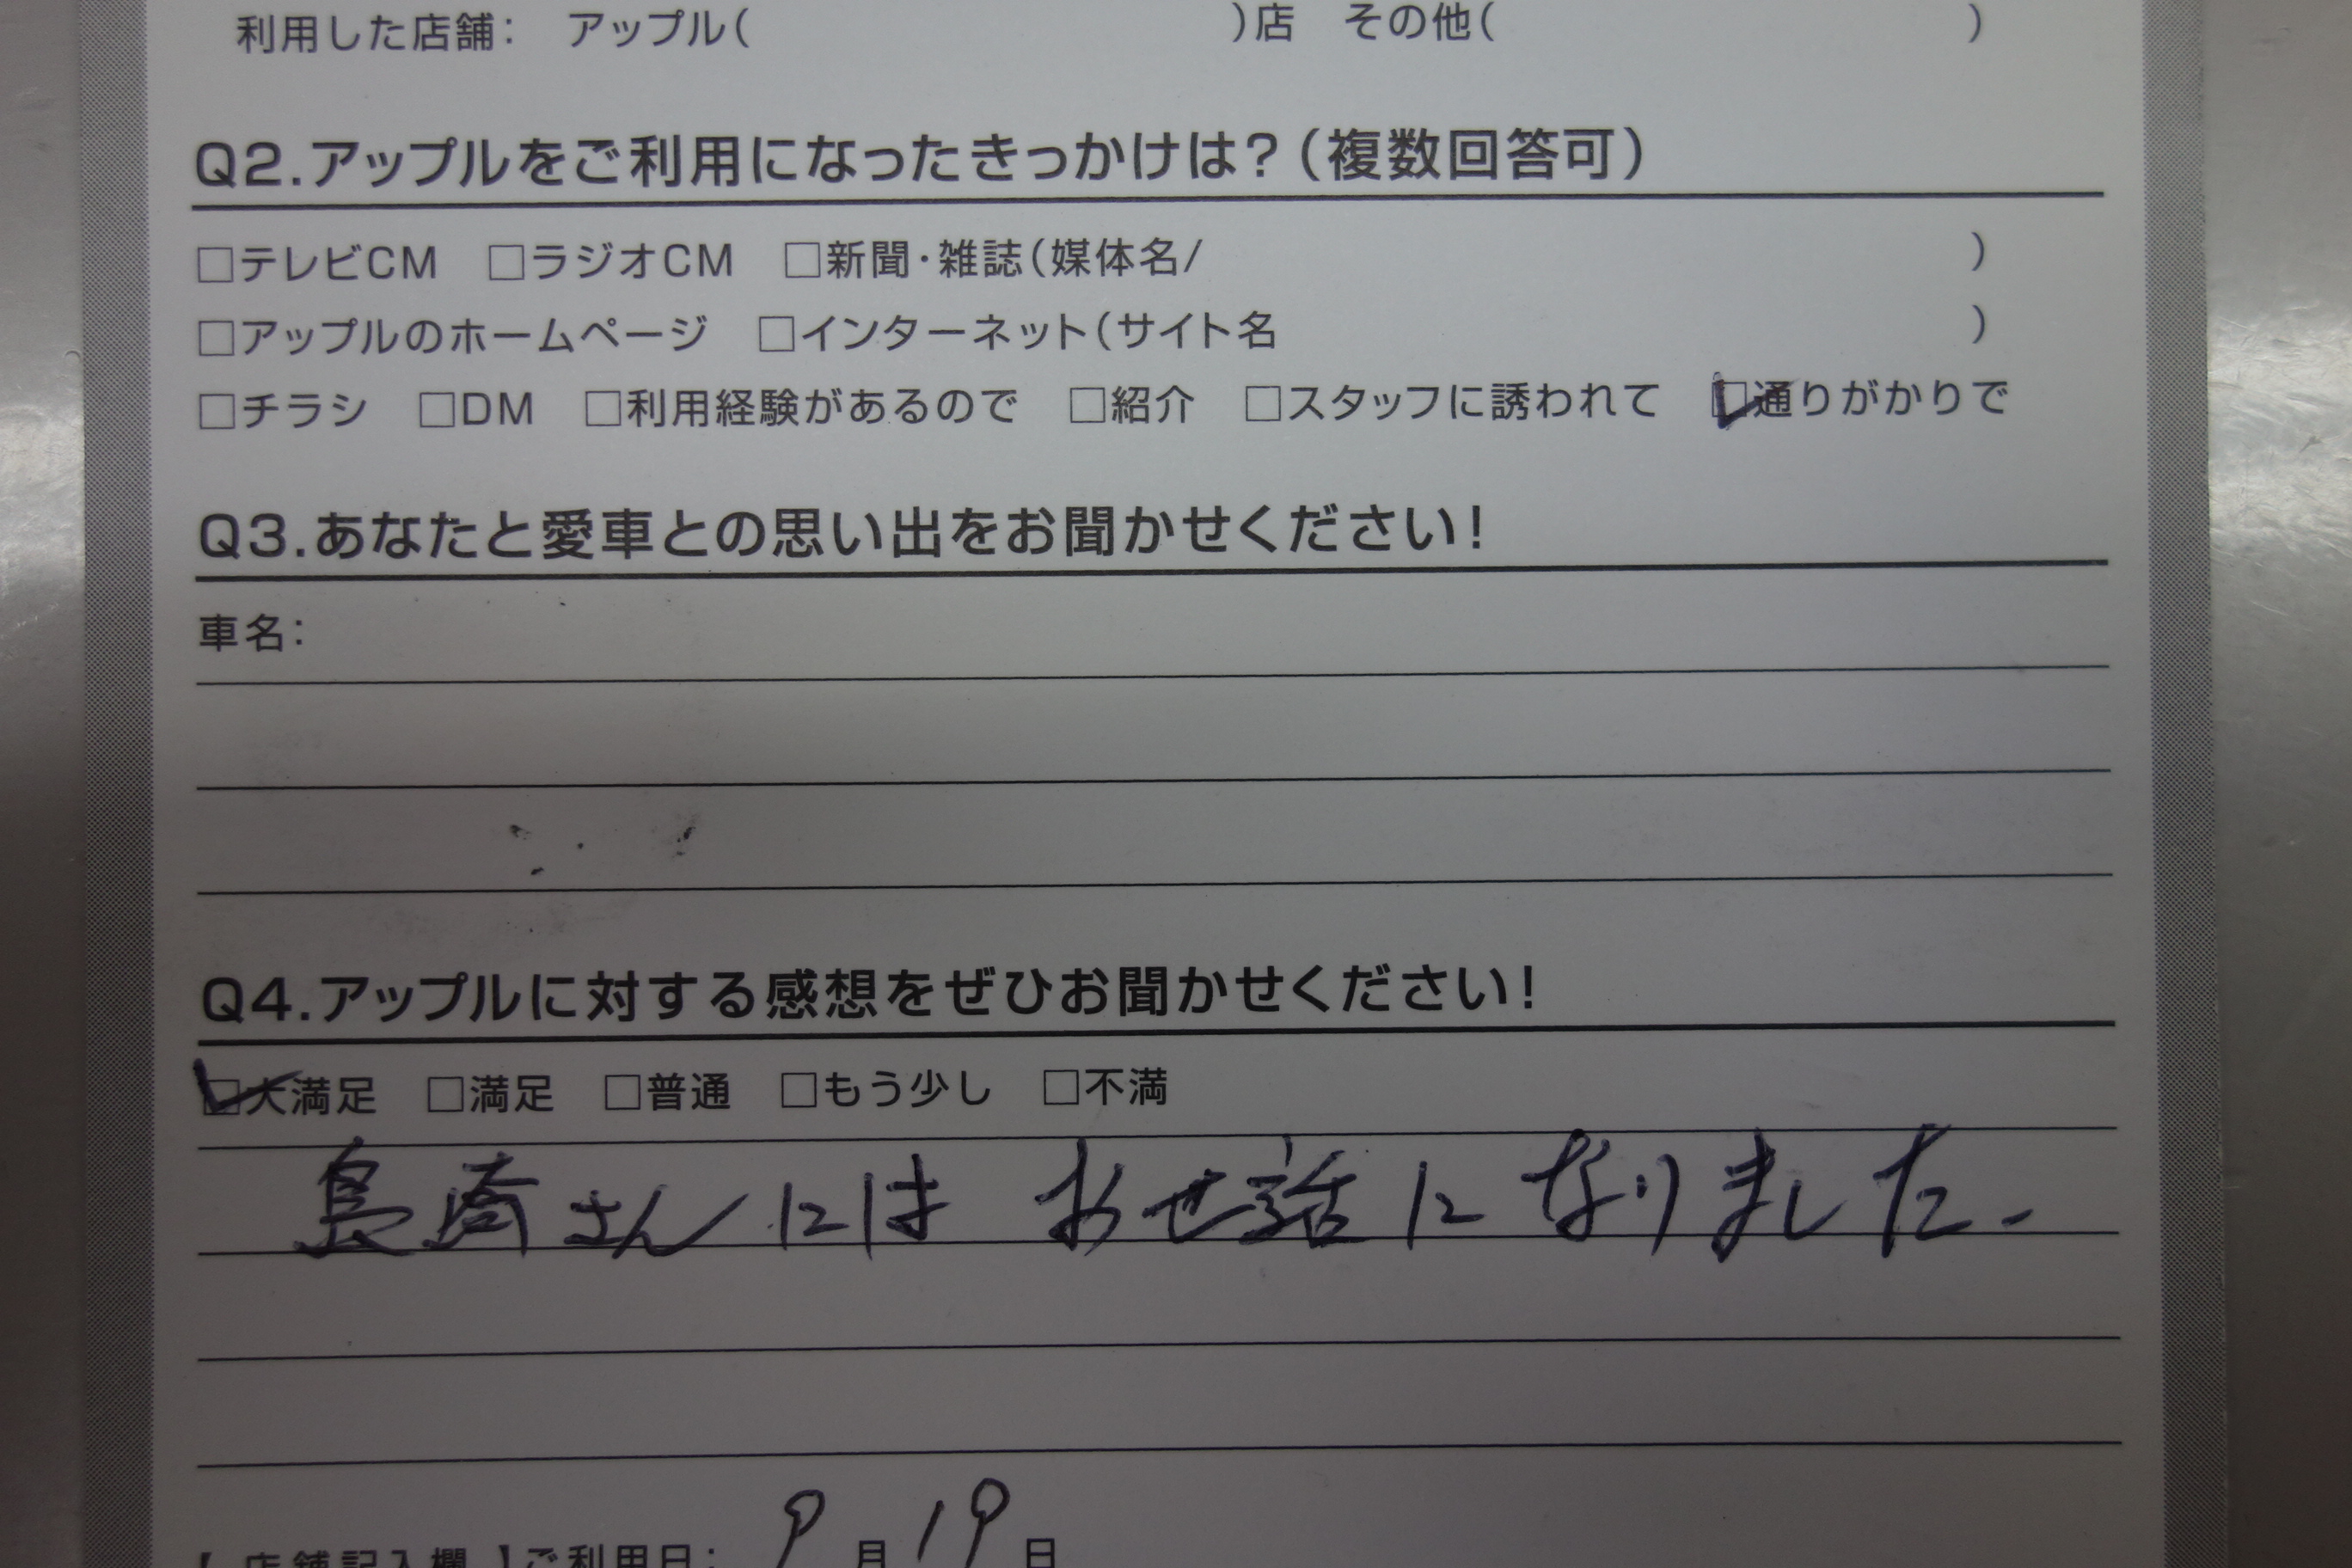 利用した店舗： アップル（ ）店 その他（ ）
Q2.アップルをご利用になったきっかけは？（複数回答可）
□テレビCM □ラジオCM □新聞・雑誌（媒体名/ ）
□アップルのホームページ □インターネット（サイト名 ）
□チラシ □DM □利用経験があるので □紹介 □スタッフに誘われて ☑通りがかりで
Q3.あなたと愛車との思い出をお聞かせください！
車名：
Q4.アップルに対する感想をぜひお聞かせください！
☑大満足 □満足 □普通 □もう少し □不満
島崎さんには お世話になりました.
【店舗記入欄】ご利用日： 9月19日